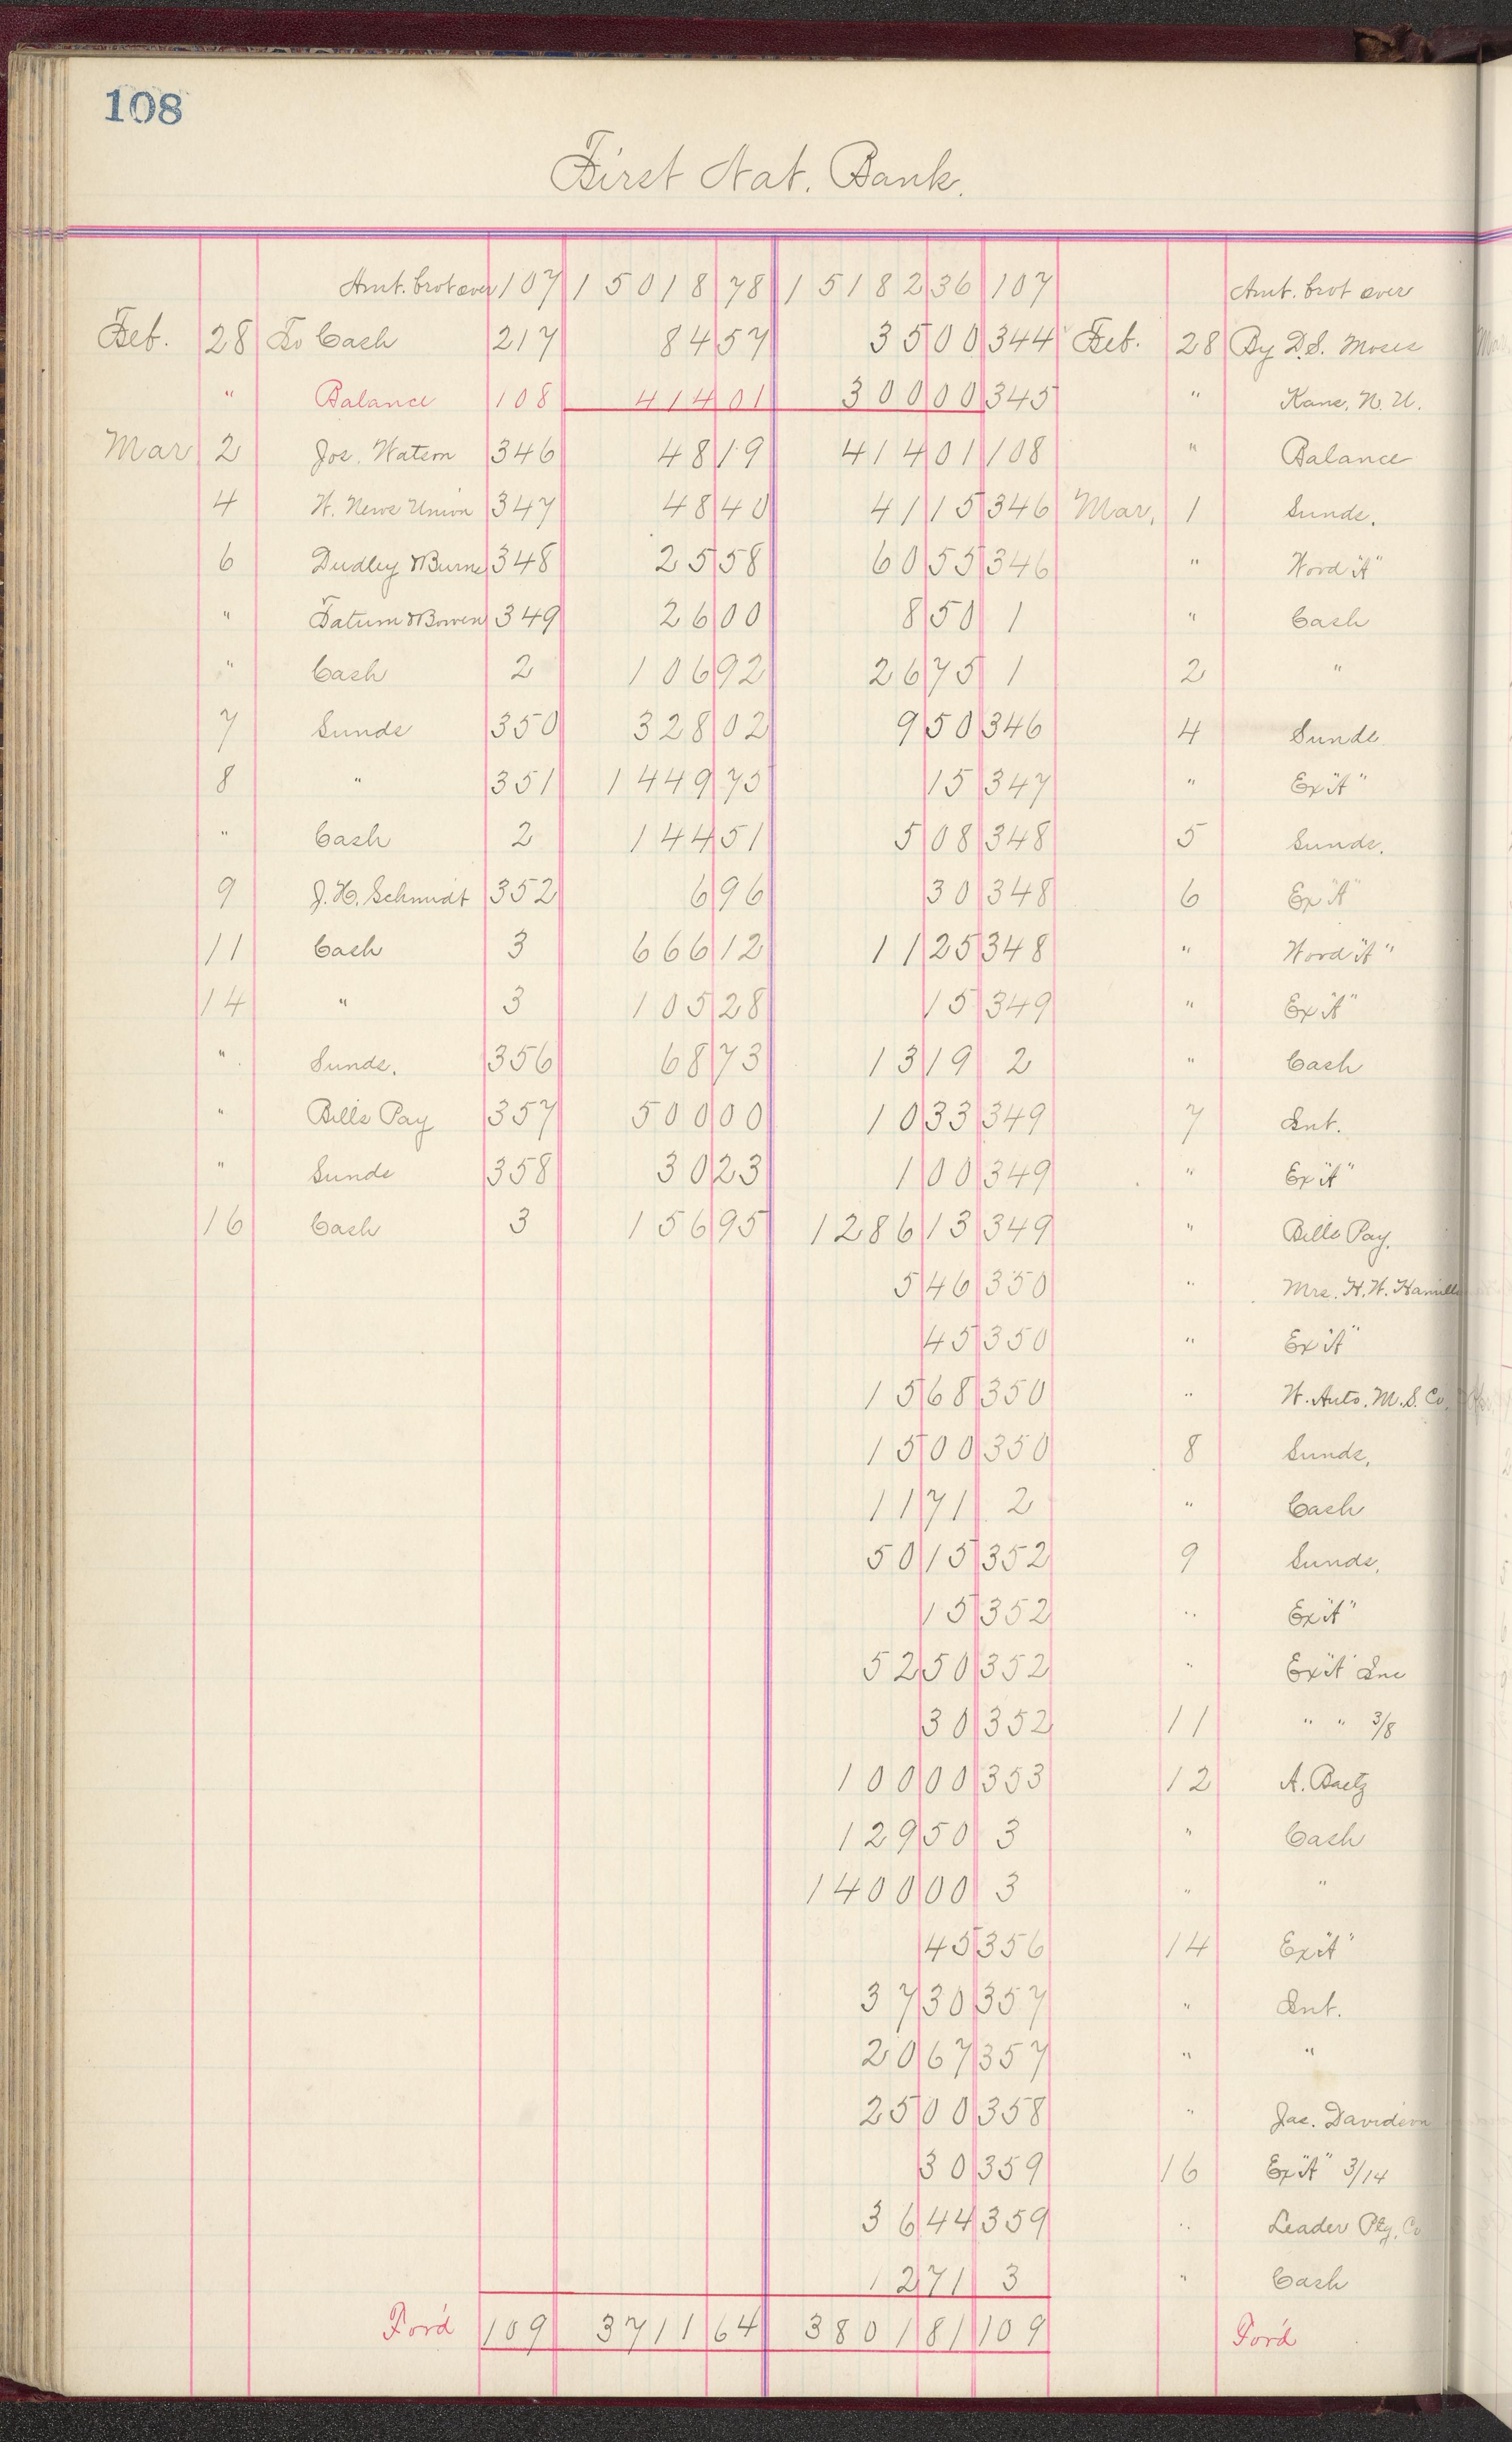 108
First Nat. Bank.
Amt. brot over 107 15018 78 15182 36 107 Amt. brot over
Feb. 28 To Cash 217 84 57 35 00 344 Feb. 28 By D.S. Moses
" Balance 108 414 01 300 00 345 " Kane, N. U.
Mar 2 Jos. Watson 346 48 19 414 01 108 " Balance
4 W. News Union 347 48 40 41 15 346 Mar. 1 Sunds.
6 Dudley & Burns 348 25 58 60 55 346 " Word "A"
" Tatum & Bowen 349 26 00 8 50 1 " Cash
" Cash 2 106 92 26 75 1 2 "
7 Sunds 350 328 02 9 50 346 4 Sunds
8 " 351 1449 75 15 347 " Ex "A"
" Cash 2 144 51 5 08 348 5 Sunds.
9 J. H. Schmidt 352 6 96 30 348 6 Ex "A"
11 Cash 3 666 12 11 25 348 " Word "A"
14 " 3 105 28 15 349 " Ex "A"
" Sunds. 356 68 73 13 19 2 " Cash
" Bills Pay 357 500 00 10 33 349 7 Int.
" Sunds 358 30 23 1 00 349 " Ex "A"
16 Cash 3 156 95 1286 13 349 " Bills Pay.
5 46 350 " Mrs. H. W.
45 350 " Ex "A"
15 68 350 " W. Auto. M. S. Co.
15 00 350 8 Sunds.
11 71 2 " Cash
50 15 352 9 Sunds.
15 352 " Ex "A"
52 50 352 " Ex "A" Inc
30 352 11 " " 3/8
100 00 353 12 A. Baetz
129 50 3 " Cash
1400 00 3 " "
45 356 14 Ex "A"
37 30 357 " Int.
20 67 357 " "
25 00 358 " Jas. Davidson
30 359 16 Ex "A" 3/14
36 44 359 " Leader Ptg. Co
12 71 3 " Cash
For'd 109 3711 64 3801 81 109 For'd